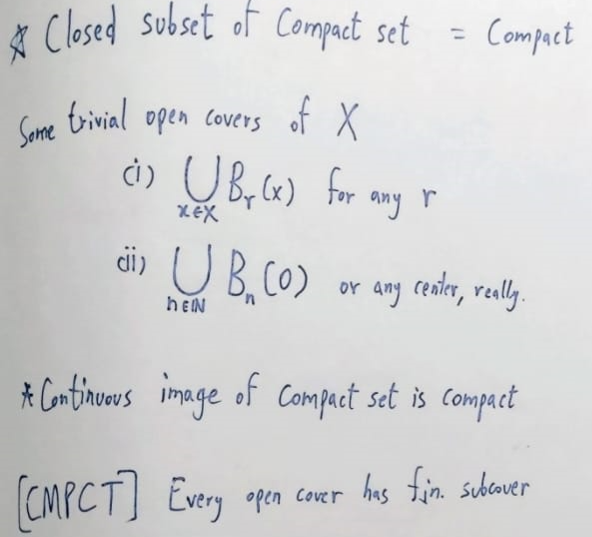 ☆ Closed subset of Compact set = Compact
Some trivial open covers of X
(i) ⋃_{x∈X} B_r(x) for any r
(ii) ⋃_{n∈ℕ} B_n(0) or any center, really.
* Continuous image of Compact set is compact
[CMPCT] Every open cover has fin. subcover